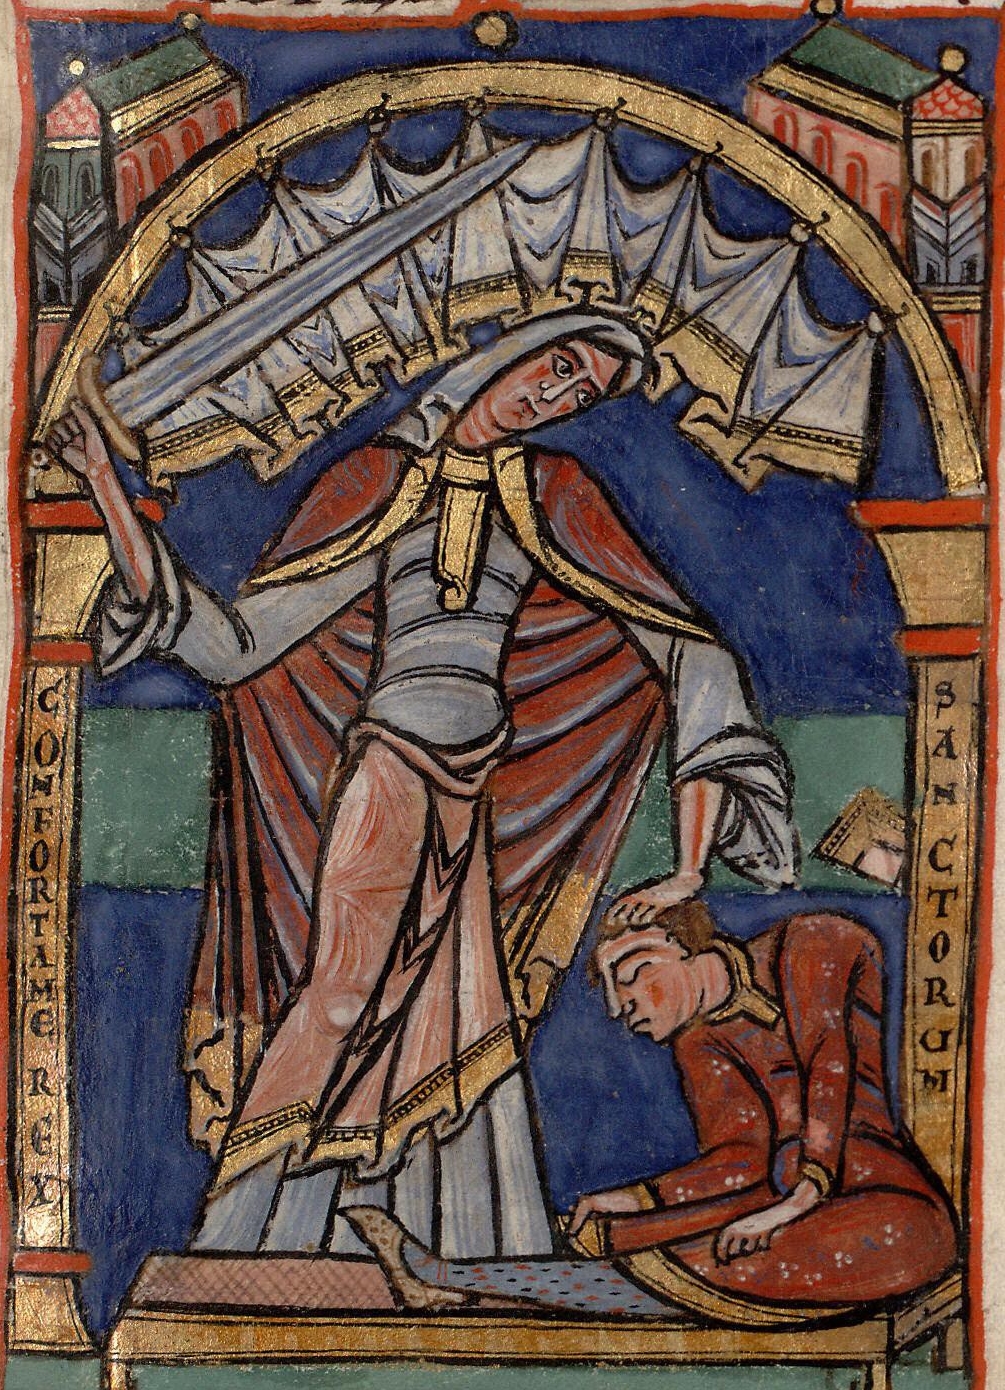 CONFORTAMEREX
SANCTORUM